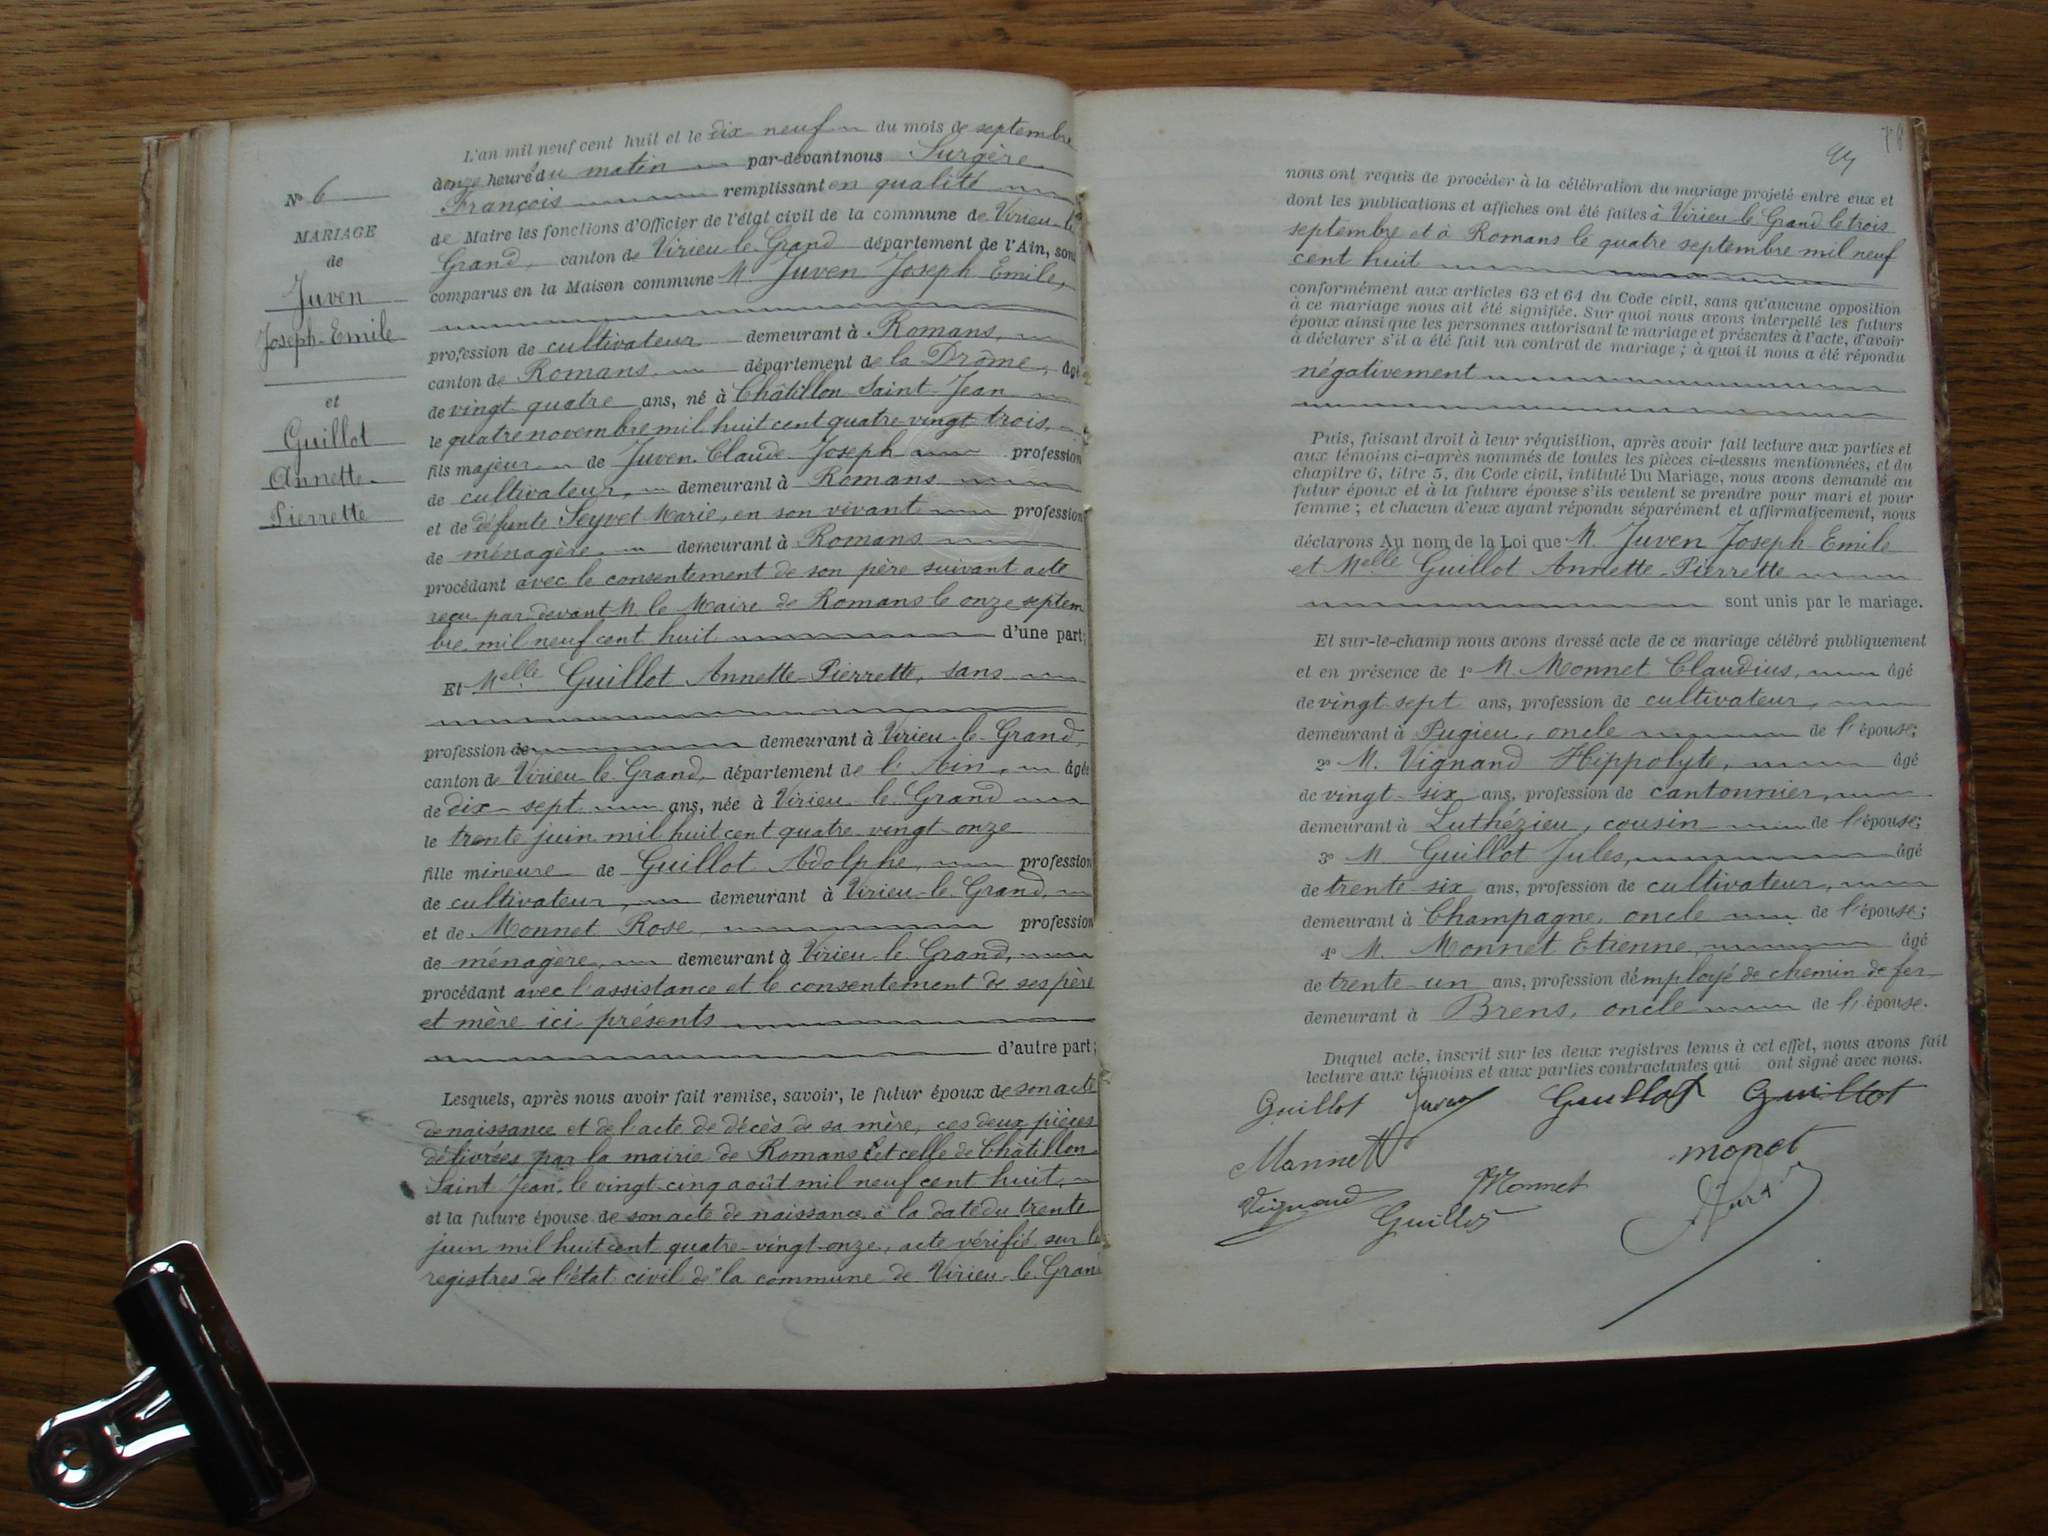 N° 6
MARIAGE
de
Juven
Joseph-Emile
et
Guillot
Annette-
Pierrette
L'an mil neuf cent huit et le dix-neuf du mois de septembre
à onze heures du matin par-devant nous Surgère
François remplissant en qualité
de Maire les fonctions d'Officier de l'état civil de la commune de Virieu-le-
Grand, canton de Virieu-le-Grand département de l'Ain, sont
comparus en la Maison commune M. Juven Joseph Emile,
profession de cultivateur demeurant à Romans,
canton de Romans département de la Drôme, âgé
de vingt quatre ans, né à Châtillon Saint Jean
le quatre novembre mil huit cent quatre-vingt trois,
fils majeur de Juven Claude Joseph profession
de cultivateur, demeurant à Romans
et de défunte Seyvet Marie, en son vivant profession
de ménagère, demeurant à Romans
procédant avec le consentement de son père suivant acte
reçu par devant M. le Maire de Romans le onze septem
bre mil neuf cent huit d'une part;
Et Melle Guillot Annette-Pierrette, sans
profession de demeurant à Virieu-le-Grand,
canton de Virieu-le-Grand, département de l'Ain, âgée
de dix-sept ans, née à Virieu-le-Grand
le trente juin mil huit cent quatre-vingt-onze
fille mineure de Guillot Adolphe, profession
de cultivateur, demeurant à Virieu-le-Grand,
et de Monnet Rose, profession
de ménagère, demeurant à Virieu-le-Grand,
procédant avec l'assistance et le consentement de ses père
et mère ici présents
d'autre part;
Lesquels, après nous avoir fait remise, savoir, le futur époux de son acte
de naissance et de l'acte de décès de sa mère, ces deux pièces
délivrées par la mairie de Romans et celle de Châtillon
Saint Jean, le vingt cinq août mil neuf cent huit,
et la future épouse de son acte de naissance à la date du trente
juin mil huit cent quatre-vingt-onze, acte vérifié sur le
registres de l'état civil de la commune de Virieu-le-Grand
78
nous ont requis de procéder à la célébration du mariage projeté entre eux et
dont les publications et affiches ont été faites à Virieu-le-Grand le trois
septembre et à Romans le quatre septembre mil neuf
cent huit
conformément aux articles 63 et 64 du Code civil, sans qu'aucune opposition
à ce mariage nous ait été signifiée. Sur quoi nous avons interpellé les futurs
époux ainsi que les personnes autorisant le mariage et présentes à l'acte, d'avoir
à déclarer s'il a été fait un contrat de mariage; à quoi il nous a été répondu
négativement
Puis, faisant droit à leur réquisition, après avoir fait lecture aux parties et
aux témoins ci-après nommés de toutes les pièces ci-dessus mentionnées, et du
chapitre 6, titre 5, du Code civil, intitulé Du Mariage, nous avons demandé au
futur époux et à la future épouse s'ils veulent se prendre pour mari et pour
femme; et chacun d'eux ayant répondu séparément et affirmativement, nous
déclarons Au nom de la Loi que M. Juven Joseph Emile
et Melle Guillot Annette-Pierrette
sont unis par le mariage.
Et sur-le-champ nous avons dressé acte de ce mariage célébré publiquement
et en présence de 1° M. Monnet Claudius, âgé
de vingt sept ans, profession de cultivateur,
demeurant à Pugieu, oncle de l'épouse;
2° M. Vignand Hippolyte, âgé
de vingt-six ans, profession de cantonnier,
demeurant à Luthézieu, cousin de l'épouse;
3° M Guillot Jules, âgé
de trente six ans, profession de cultivateur,
demeurant à Champagne, oncle de l'épouse;
4° M. Monnet Etienne, âgé
de trente-un ans, profession d'employé de chemin de fer
demeurant à Brens, oncle de l'épouse.
Duquel acte, inscrit sur les deux registres tenus à cet effet, nous avons fait
lecture aux témoins et aux parties contractantes qui ont signé avec nous.
Guillot Juven Guillot Guillot
Monnet monet
Vignand Monnet
Guillot